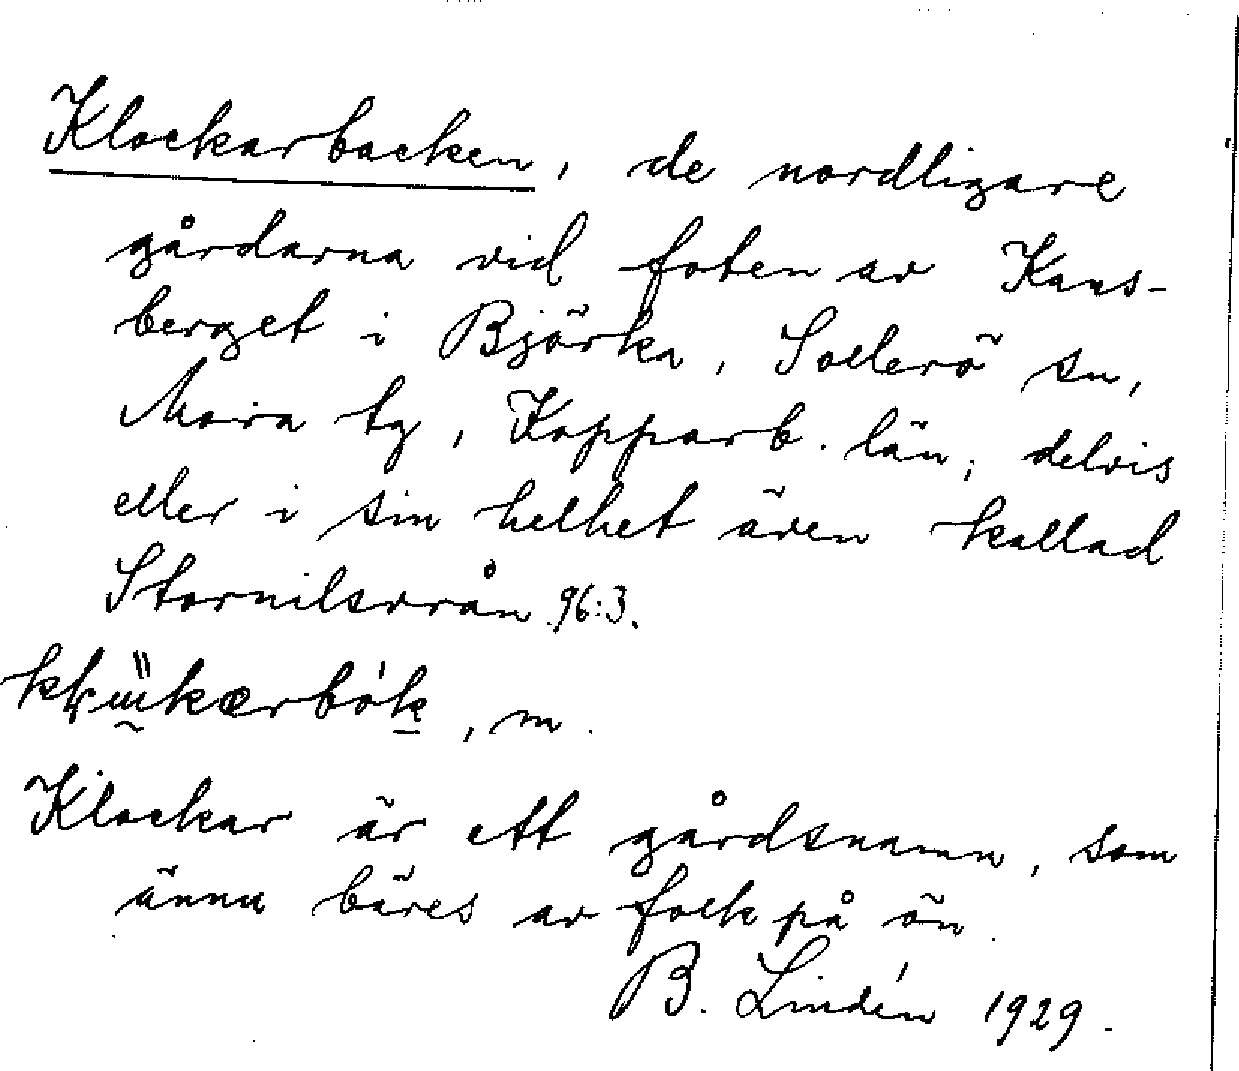 Klockarbacken, de nordligare
gårdarna vid foten av Kans-
berget i Björka, Sollerö sn,
Mora tg, Kopparb. län, delvis
eller i sin helhet även kallad
Stornilsvrån 96:3.
, m.
Klockar är ett gårdsnamn, som
ännu bäres av folk på ön.
B. Lindén 1929.